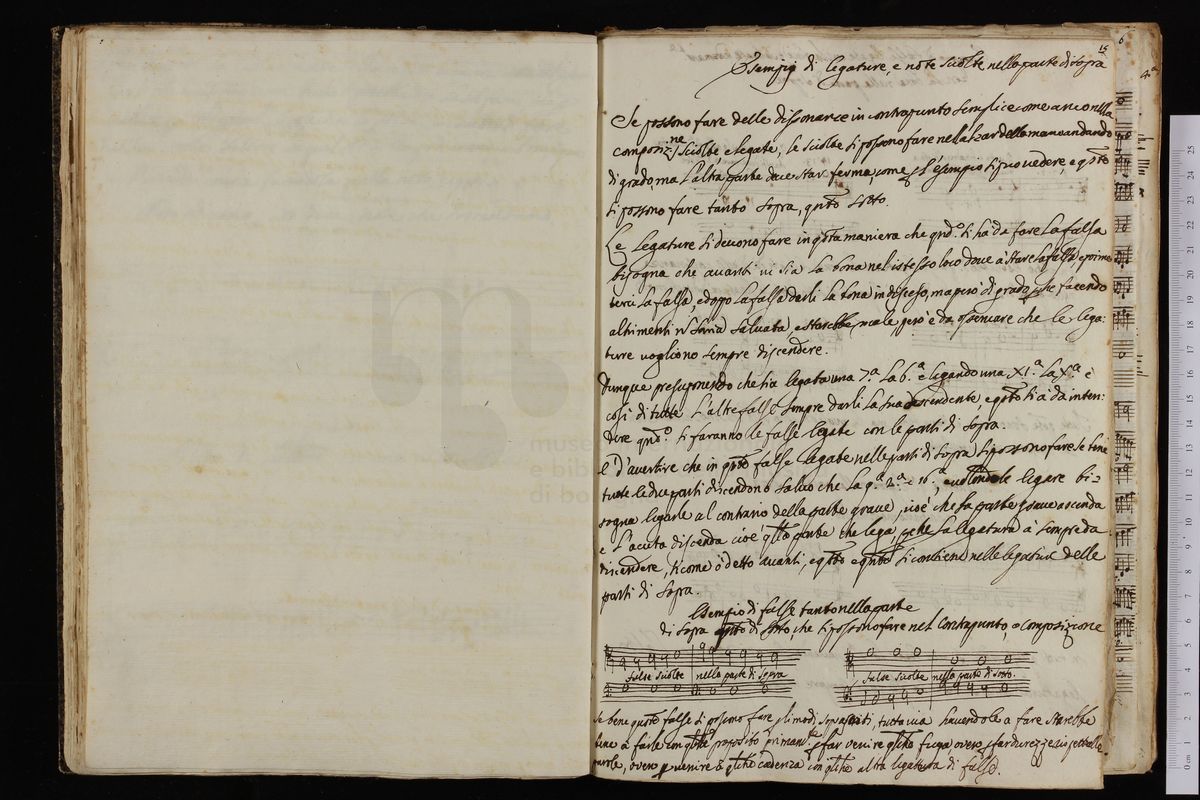 15
Esempio di legature, e note sciolte nella parte di sopra
Se possono fare delle dissonanze in contrapunto semplice come anco nella
compositne sciolte, e legate, le sciolte si possono fare nell'alzar della mano andando
di grado, ma l'altra parte deve star ferma, come l'esempio si può vedere, e qsto
si possono fare tanto sopra, qnto sotto.
Le legature si devono fare in qsta maniera che qndo si ha da fare la falsa
bisogna che avanti vi sia la bona nel istesso loco dove a stare la falsa, e poi
la falsa, e doppo la falsa darli la bona in disceso, ma però di grado, facendo
altrimenti saria salvata, e starebbe male però è da osservare che le lega:
ture vogliono sempre discendere.
Dunque presuponendo che sia legata una 7a la 6a e legando una XIa la Xa è
così di tutte l'alte false sempre darli la sua descendente e qsto si à da inten:
dere qndo si faranno le false legate con le parti di sopra
E d'avertire che in qste false legate nelle parti di sopra si possono fare se bene
tutte le due parti discendono salvo che la 9a 2a e 16a, e volendole ligare bi=
sogna ligarle al contrario della parte grave, cioè che la parte grave ascenda
e l'acuta discenda cioè qlla parte che lega, la legatura à sempre da
discendere, si come ò detto avanti, e qsto e qnto si contiene nelle legature delle
parti di sopra.
Esempio di false tanto nella parte
di sopra qnto di sotto che si possono fare nel Contrapunto, o composizione
False sciolte nella parte di sopra
False sciolte nella parte di sotto.
Se bene queste false si possono fare modi, tuttavia havendole a fare starebbe
bene a farle con qlche proposito far venire qlche fuga overo
parole, overo p venire à qlche cadenza con qlche altra ligatura di false.
museo
e bibl
di bolo